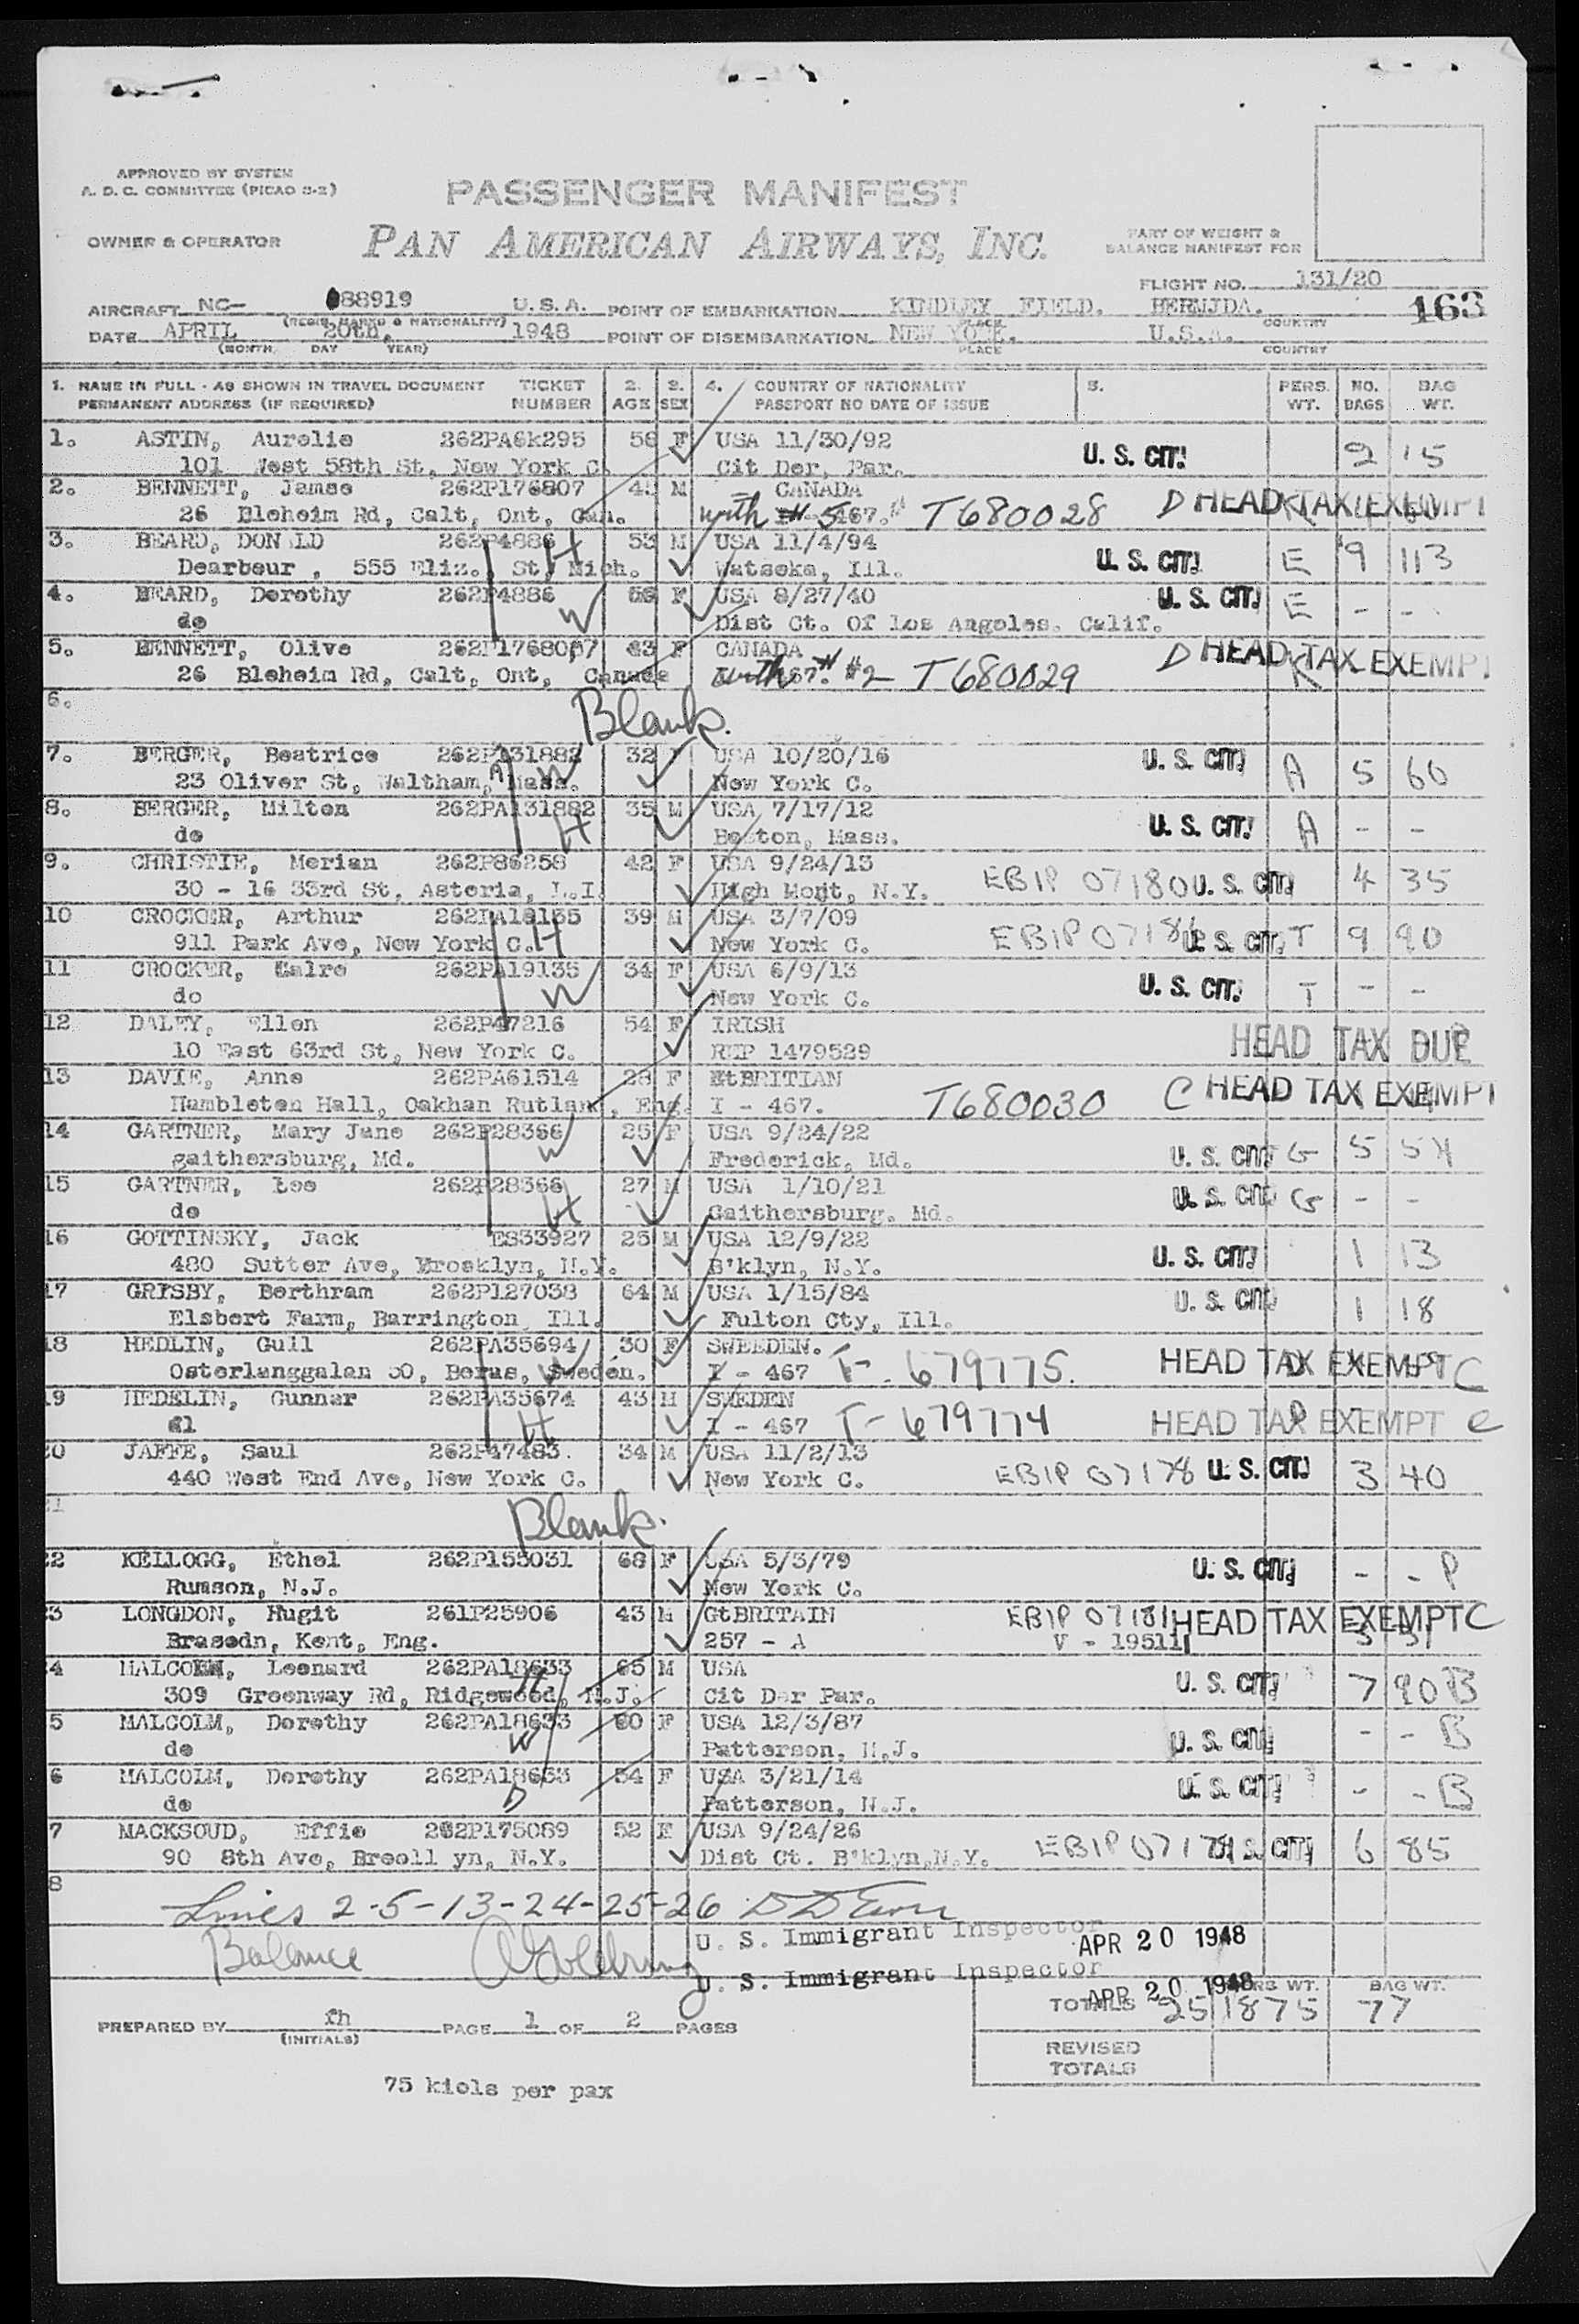 APPROVED BY SYSTEM
A. D. C. COMMITTEE (PICAO S-2)
PASSENGER MANIFEST
OWNER & OPERATOR
PAN AMERICAN AIRWAYS, INC.
PART OF WEIGHT &
BALANCE MANIFEST FOR
FLIGHT NO. 131/20
AIRCRAFT NC- 88919 U.S.A. POINT OF EMBARKATION KINDLEY FIELD. BERMUDA. 163
(REGIS. MARKS & NATIONALITY) PLACE COUNTRY
DATE APRIL 20th, 1948 POINT OF DISEMBARKATION NEW YORK. U.S.A.
(MONTH DAY YEAR) PLACE COUNTRY
1. NAME IN FULL - AS SHOWN IN TRAVEL DOCUMENT TICKET 2. 3. 4. COUNTRY OF NATIONALITY 5. PERS. NO. BAG
PERMANENT ADDRESS (IF REQUIRED) NUMBER AGE SEX PASSPORT NO DATE OF ISSUE WT. BAGS WT.
1. ASTIN, Aurelie 262PA6k295 56 F USA 11/30/92 U. S. CIT. 2 15
101 West 58th St, New York C. Cit Der, Par.
2. BENNETT, Jamse 262P176807 M CANADA
26 Bleheim Rd, Calt, Ont, Can. with # 5 467. T680028 D HEAD TAX EXEMPT
3. BEARD, DON LD 262P4886 H 53 M USA 11/4/94
Dearbour , 555 Eliz. St, Mich. Watseka, Ill. U. S. CIT. E 9 113
4. BEARD, Dorothy 262P4886 W 56 F USA 8/27/40 U. S. CIT. E - -
do Dist Ct. Of Los Angeles. Calif.
5. BENNETT, Olive 262P1768007 43 F CANADA D HEAD TAX EXEMPT
26 Bleheim Rd, Calt, Ont, Canada with 467. #2 T680029
6. Blank.
7. BERGER, Beatrice 262P131882 W 32 USA 10/20/16 U. S. CIT. A 5 60
23 Oliver St, Waltham, Mass. New York C.
8. BERGER, Milton 262PA131882 H 35 M USA 7/17/12 U. S. CIT. A - -
do Boston, Mass.
9. CHRISTIE, Merian 262P86258 42 F USA 9/24/13
30 - 16 33rd St, Astoria, L.I. High Mont, N.Y. EBIP 07180 U. S. CIT. 4 35
10 CROCKER, Arthur 262PA19135 39 M USA 3/7/09
911 Park Ave, New York C. H New York C. EBIP 0718 U. S. CIT. T 9 90
11 CROCKER, Calre 262PA19135 34 F USA 6/9/13
do W New York C. U. S. CIT. T - -
12 DALEY, Ellen 262P47216 54 F IRISH
10 East 63rd St, New York C. REP 1479529 HEAD TAX DUE
13 DAVIE, Anne 262PA61514 28 F GtBRITIAN
Hambleten Hall, Oakhan Rutland, Eng. I - 467. T680030 C HEAD TAX EXEMPT
14 GARTNER, Mary Jane 262P28366 25 F USA 9/24/22
gaithersburg, Md. W Frederick, Md. U. S. CIT. G 5 54
15 GARTNER, Lee 262P28366 27 M USA 1/10/21
do H Gaithersburg, Md. U. S. CIT. G - -
16 GOTTINSKY, Jack ES33927 25 M USA 12/9/22
480 Sutter Ave, Brooklyn, N.Y. B'klyn, N.Y. U. S. CIT. 1 13
17 GRISBY, Berthram 262P127038 64 M USA 1/15/84
Elsbert Farm, Barrington Ill. Fulton Cty, Ill. U. S. CIT. 1 18
18 HEDLIN, Gull 262PA35694 30 F SWEEDEN.
Osterlanggalan 50, Boras, Sweden. I - 467 T- 679775. HEAD TAX EXEMPT C
19 HEDELIN, Gunnar 262PA35674 43 M SWEDEN
H I - 467 T- 679774 HEAD TAX EXEMPT C
20 JAFFE, Saul 262P47483. 34 M USA 11/2/13
440 West End Ave, New York C. New York C. EBIP 07178 U. S. CIT. 3 40
21 Blank.
22 KELLOGG, Ethel 262P155031 68 F USA 5/3/79
Rumson, N.J. New York C. U. S. CIT. - - P
3 LONGDON, Hugit 261P25906 43 M GtBRITAIN EBIP 07181 HEAD TAX EXEMPT C
Brasedn, Kent, Eng. 257 - A V - 19511
4 MALCOLM, Leonard 262PA18633 65 M USA
309 Greenway Rd, Ridgewood, N.J. Cit Der Par. U. S. CIT. 7 90 B
5 MALCOLM, Dorothy 262PA18633 60 F USA 12/3/87
do W Patterson, N.J. U. S. CIT. - - B
6 MALCOLM, Dorothy 262PA18633 34 F USA 3/21/14
do D Patterson, N.J. U. S. CIT. - - B
7 MACKSOUD, Effie 262P175089 52 F USA 9/24/26
90 8th Ave, Brooll yn, N.Y. Dist Ct. B'klyn,N.Y. EBIP 07179 U. S. CIT. 6 85
8
Lines 2-5-13-24-25-26
U. S. Immigrant Inspector
APR 20 1948
Balance
U. S. Immigrant Inspector
APR 20 1948
PERS WT. BAG WT.
TOTALS 25 1875 77
PREPARED BY fh PAGE 1 OF 2 PAGES
(INITIALS)
REVISED
TOTALS
75 kiols per pax